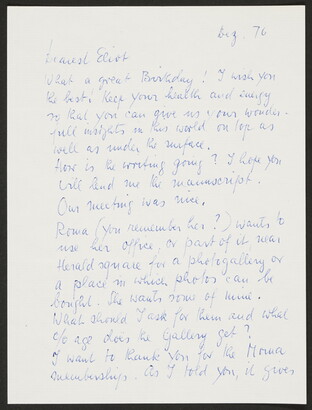 Dec. 76
Dearest Eliot
What a great Birthday! I wish you
the best! Keep your health and energy
so that you can give us your wonder-
full insights in this world on top as
well as under the surface.
How is the writing going? I hope you
will send me the manuscript.
Our meeting was nice.
Roma (you remember her?) wants to
use her office, or part of it near
Herald square for a photogallery or
a place in which photos can be
bought. She wants some of mine.
What should I ask for them and what
%age does the Gallery get?
I want to thank you for the Moma
memberships. As I told you, it gives